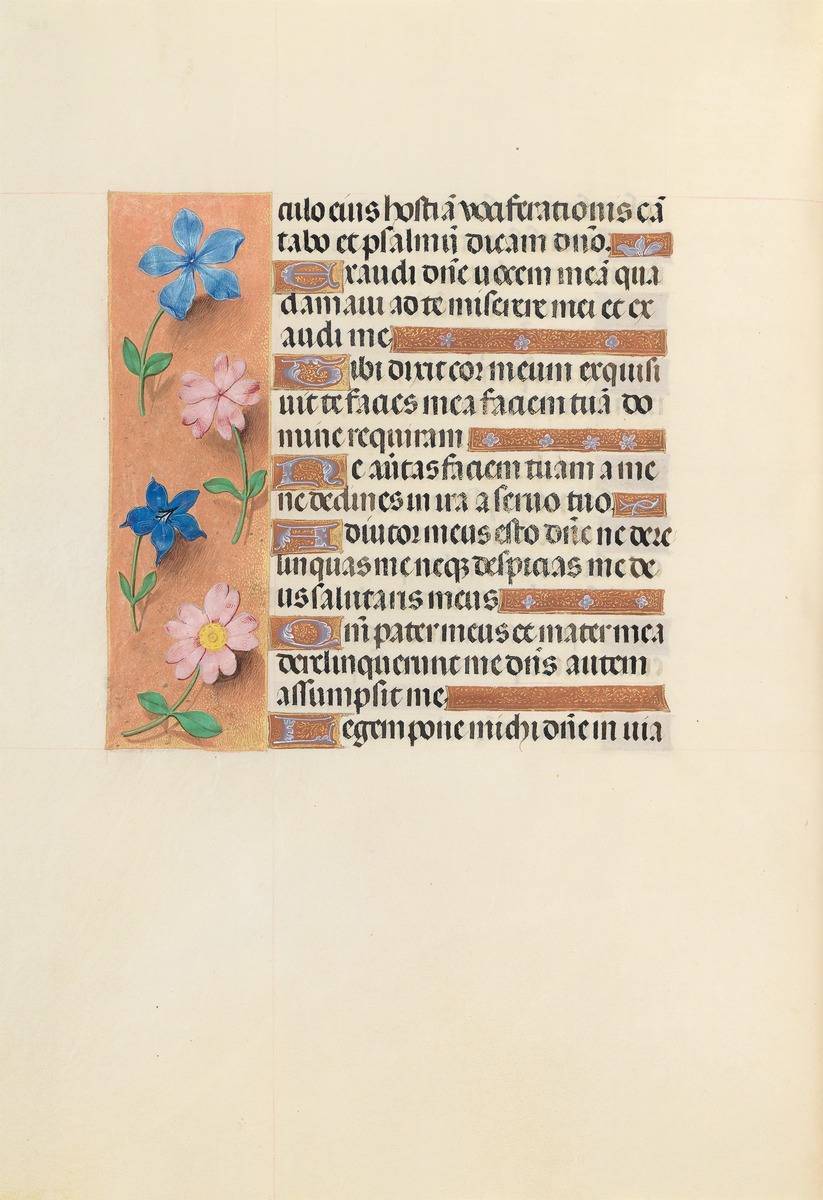 culo eius hostiā vociferationis cā
tabo et psalmū dicam dn̄o.
Exaudi dn̄e uocem meā qua
clamaui ad te miserere mei et ex
audi me
Tibi dixit cor meum exquisi
uit te facies mea faciem tuā do
mine requiram
Ne auertas faciem tuam a me
ne declines in ira a seruo tuo.
Adiutor meus esto dn̄e ne dere
linquas me neqz despicias me de
us salutaris meus
Qm̄ pater meus et mater mea
derelinquerunt me dn̄s autem
assumpsit me
Legem pone michi dn̄e in uia